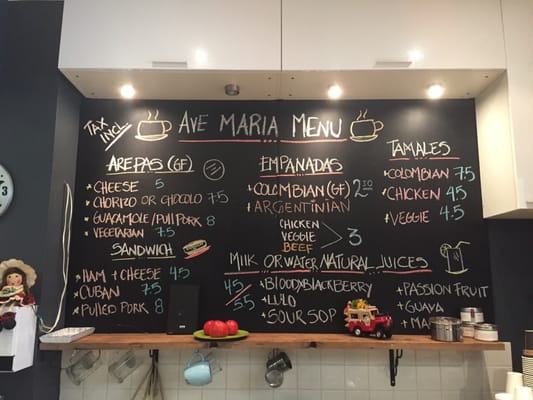 TAX INCL
AVE MARIA MENU
AREPAS (GF)
CHEESE 5
CHORIZO OR CHOCLO 7.5
GUACAMOLE/PULL PORK 8
VEGETARIAN 7.5
SANDWICH
HAM + CHEESE 4.5
CUBAN 7.5
PULLED PORK 8
EMPANADAS
COLOMBIAN (GF) 2.50
ARGENTINIAN
CHICKEN
VEGGIE
BEEF
3
TAMALES
COLOMBIAN 7.5
CHICKEN 4.5
VEGGIE 4.5
MILK OR WATER NATURAL JUICES
4.5/5.5
+BLOODYBLACKBERRY
+LULO
+SOUR SOP
+PASSION FRUIT
+GUAVA